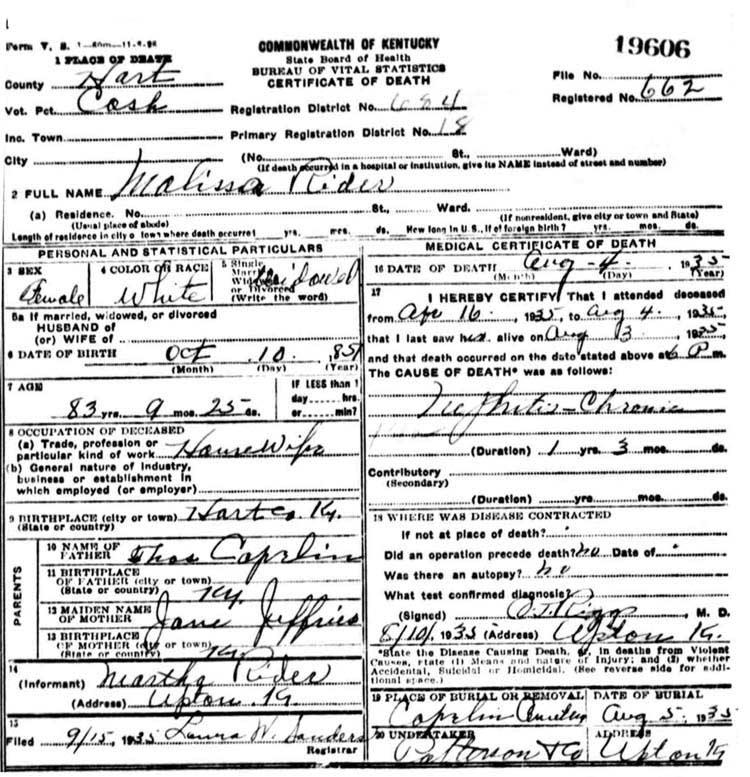 Form V. S. 1—50m—11-8-26
COMMONWEALTH OF KENTUCKY
State Board of Health
BUREAU OF VITAL STATISTICS
CERTIFICATE OF DEATH
19606
1 PLACE OF DEATH
County Hart
File No.
Vot. Pct. Cash
Registration District No. 684
Registered No. 662
Inc. Town
Primary Registration District No. 18
City
(No. St., Ward)
(If death occurred in a hospital or institution, give its NAME instead of street and number)
2 FULL NAME Malissa Rider
(a) Residence. No. St., Ward.
(Usual place of abode)
(If nonresident, give city or town and State)
Length of residence in city or town where death occurred yrs. mos. ds. How long in U.S., if of foreign birth? yrs. mos. ds.
PERSONAL AND STATISTICAL PARTICULARS
3 SEX Female
4 COLOR OR RACE White
5 Single
Married
Widowed
or Divorced
(Write the word)
Widowed
5a If married, widowed, or divorced
HUSBAND of
(or) WIFE of
6 DATE OF BIRTH Oct 10, 851
(Month) (Day) (Year)
7 AGE
83 yrs. 9 mos. 25 ds.
IF LESS than 1
day hrs.
or min?
8 OCCUPATION OF DECEASED
(a) Trade, profession or
particular kind of work House Wife
(b) General nature of industry,
business or establishment in
which employed (or employer)
9 BIRTHPLACE (city or town) Hart Co. Ky.
(State or country)
PARENTS
10 NAME OF
FATHER Thos Copelin
11 BIRTHPLACE
OF FATHER (city or town)
(State or country) Ky.
12 MAIDEN NAME
OF MOTHER Jane Jeffries
13 BIRTHPLACE
OF MOTHER (city or town)
(State or country) Ky
14
(Informant) Martha Rider
(Address) Upton Ky.
15
Filed 9/15, 1935 Laura W. Sanders
Registrar
MEDICAL CERTIFICATE OF DEATH
16 DATE OF DEATH Aug - 4 1935
(Month) (Day) (Year)
17
I HEREBY CERTIFY, That I attended deceased
from Apr 16, 1935, to Aug 4, 1935
that I last saw her alive on Aug 3, 1935,
and that death occurred on the date stated above at 6 P m.
The CAUSE OF DEATH* was as follows:
Nephritis - Chronic
(Duration) 1 yrs. 3 mos. ds.
Contributory
(Secondary)
(Duration) yrs. mos. ds.
18 WHERE WAS DISEASE CONTRACTED
If not at place of death?
Did an operation precede death? no Date of
Was there an autopsy? no
What test confirmed diagnosis?
(Signed) Riggs, M. D.
8/10, 1935 (Address) Upton Ky.
*State the Disease Causing Death, or, in deaths from Violent
Causes, state (1) Means and nature of Injury; and (2) whether
Accidental, Suicidal or Homicidal. (See reverse side for addi-
tional space.)
19 PLACE OF BURIAL OR REMOVAL
Copelin Cemetery
DATE OF BURIAL
Aug 5, 1935
20 UNDERTAKER
Patterson & Co
ADDRESS
Upton Ky